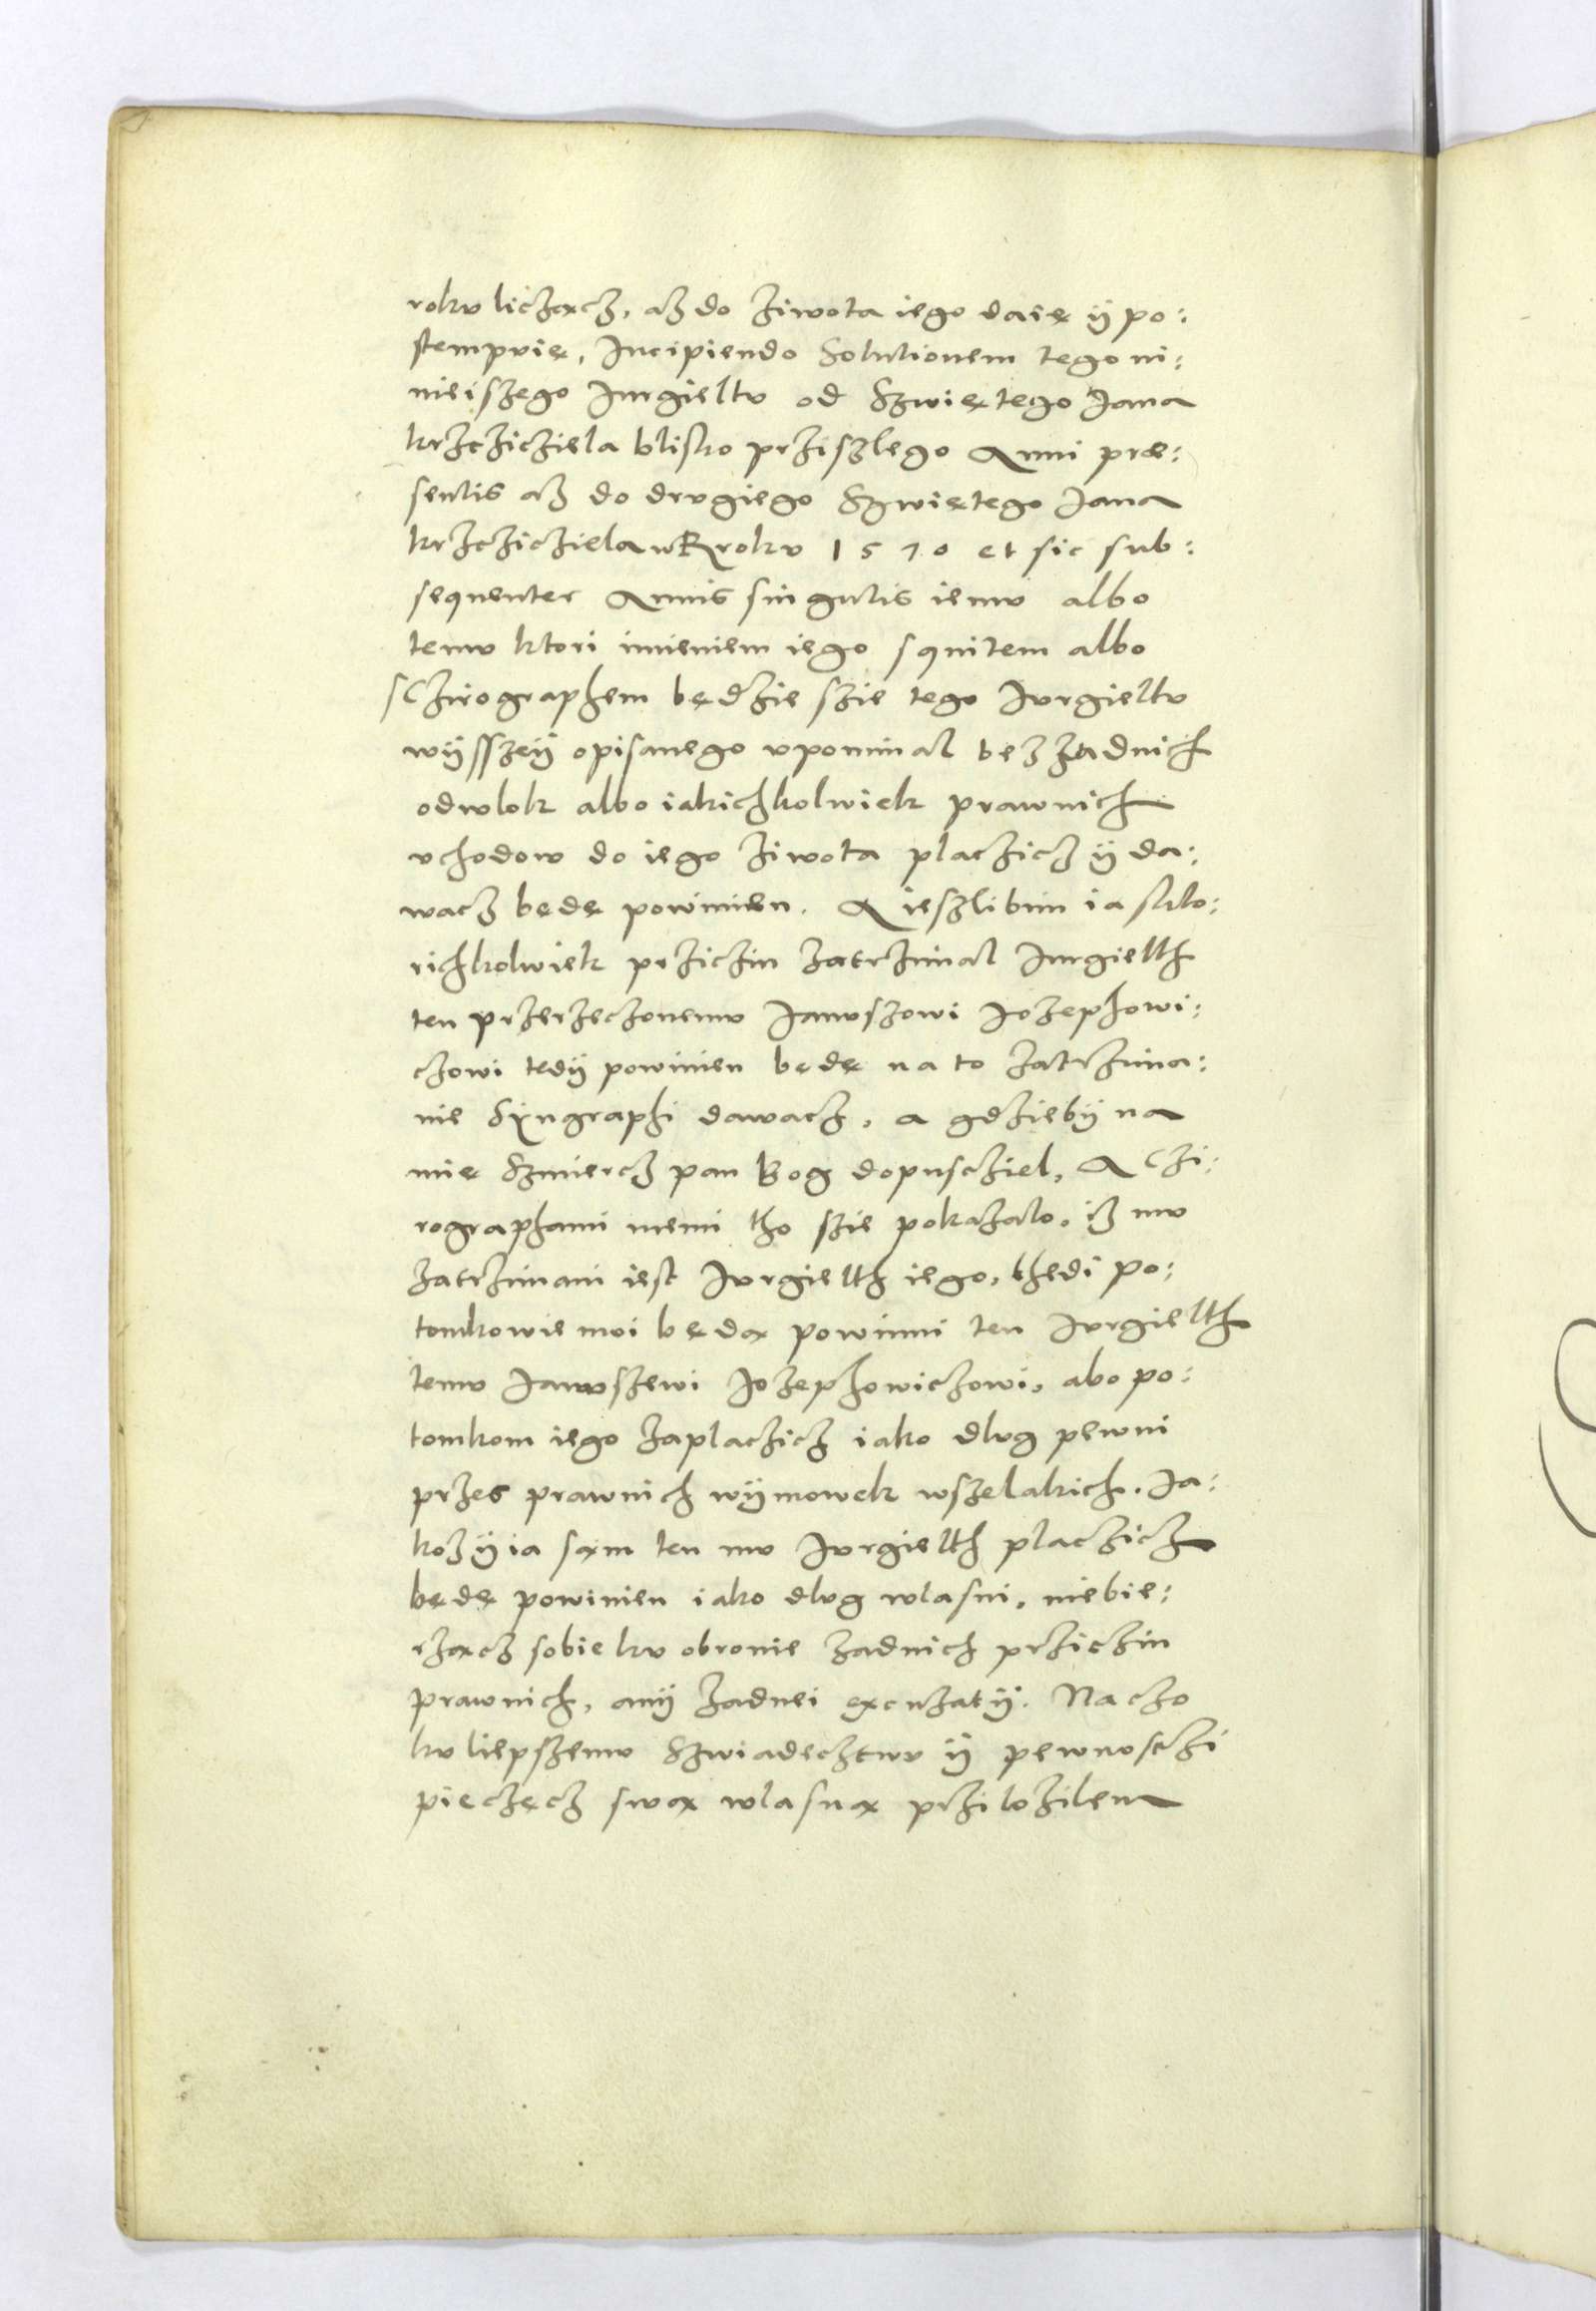 rokv liczącz, asz do ziwota iego daię ÿ po:
stempvię, Incipiendo Solutionem tego ni:
nieiszego Jurgieltv od Szwiętego Jana
krzcziciela blisko prziszlego Anni præ:
sentis asz do drvgiego Szwiętego Jana
krzczicziela w Rroku 1570 et sic sub:
sequenter Annis singulis iemv albo
temv ktori imieniem iego squitem albo
s Chirographem będzie szie tego Jvrgieltv
wÿsszeÿ opisanego vpominal bez żadnich
odwlok albo iakichkolwiek prawnich
vchodow do iego ziwota placzicz ÿ da:
wacz będę powinien. A ieszlibim ia s kto:
richkolwiek prziczin zatrzimal Jurgielth
ten przerzeczonemv Janvszowi Jozephowi:
czowi tedÿ powinien będę na to zatrzima:
nie Sÿngraphi dawacz, a gdziebÿ na
mię Szmiercz pan Bog dopuscziel, A Chi:
rographami memi tho szie pokazalo, isz mv
zatrzimani iest Jvrgielth iego, thedi po:
tomkowie moi będą powinni ten Jvrgielth
temv Janvszewi Jozephowiczowi, abo po:
tomkom iego zaplaczicz iako dlvg pewni
przes prawnich wÿmowek wszelakich. Ja:
kosz ÿ ia sąm ten mv Jvrgielth placzicz
będę powinien iako dlvg wlasni, niebie:
rzącz sobie kv obronie zadnich prziczin
prawnich, anÿ zadnei excuzatÿ. Na czo
kv liepszemv Szwiadecztwv ÿ pewnosczi
pieczęcz swą wlasną prziłozilem